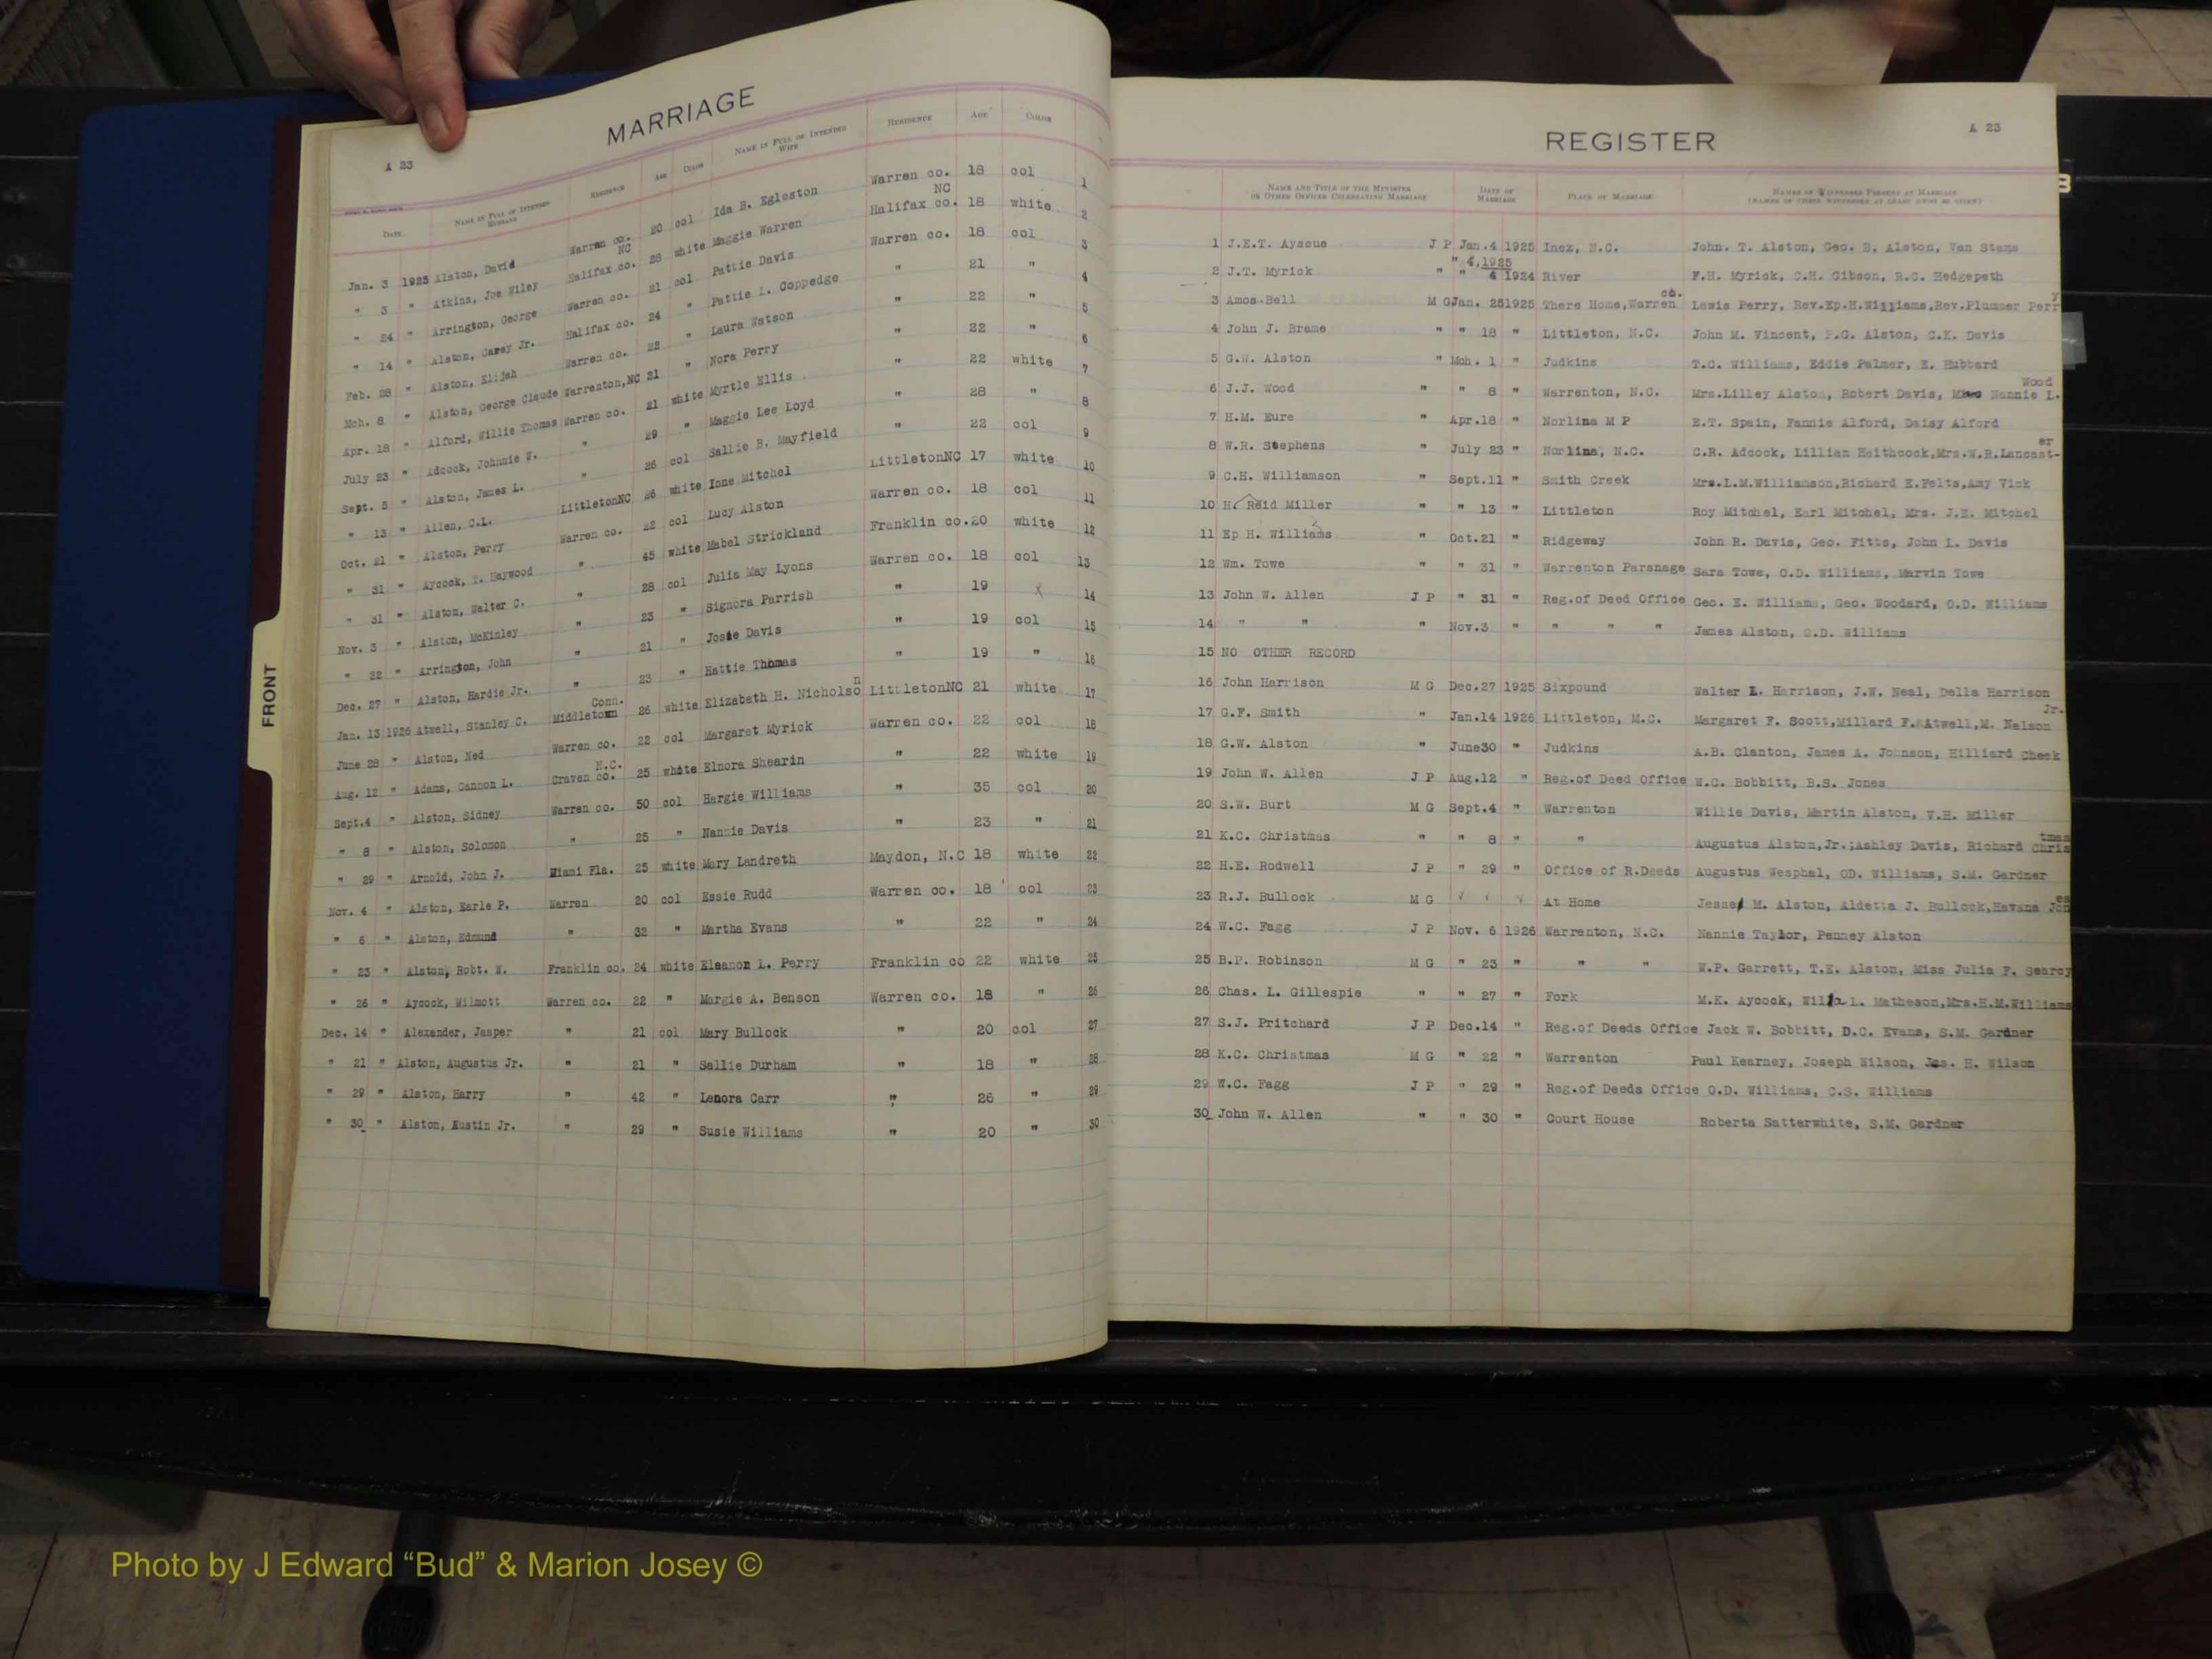 MARRIAGE
A 23
DATE
NAME IN FULL OF INTENDED HUSBAND
RESIDENCE
AGE
COLOR
NAME IN FULL OF INTENDED WIFE
RESIDENCE
AGE
COLOR
Jan. 3 1925 Alston, David Warren co. NC 20 col Ida B. Egleston Warren co. NC 18 col 1
" 3 " Atkins, Joe Wiley Halifax co. 28 white Maggie Warren Halifax co. 18 white 2
" 24 " Arrington, George Warren co. 21 col Pattie Davis Warren co. 18 col 3
" 14 " Alston, Carey Jr. Halifax co. 24 " Pattie L. Coppedge " 21 " 4
Feb. 28 " Alston, Elijah Warren co. 22 " Laura Watson " 22 " 5
Mch. 8 " Alston, George Claude Warrenton,NC 21 " Nora Perry " 22 " 6
Apr. 18 " Alford, Willie Thomas Warren co. 21 white Myrtle Ellis " 22 white 7
July 23 " Adcock, Johnnie W. " 29 " Maggie Lee Loyd " 28 " 8
Sept. 5 " Alston, James L. " 26 col Sallie B. Mayfield " 22 col 9
" 13 " Allen, C.L. LittletonNC 26 white Ione Mitchel LittletonNC 17 white 10
Oct. 21 " Alston, Perry Warren co. 22 col Lucy Alston Warren co. 18 col 11
" 31 " Aycock, T. Haywood " 45 white Mabel Strickland Franklin co. 20 white 12
" 31 " Alston, Walter C. " 28 col Julia May Lyons Warren co. 18 col 13
Nov. 3 " Alston, McKinley " 23 " Signora Parrish " 19 X 14
" 22 " Arrington, John " 21 " Josie Davis " 19 col 15
Dec. 27 " Alston, Hardie Jr. " 23 " Hattie Thomas " 19 " 16
Jan. 13 1926 Atwell, Stanley C. Middletown Conn. 26 white Elizabeth H. Nicholson LittletonNC 21 white 17
June 28 " Alston, Ned Warren co. 22 col Margaret Myrick Warren co. 22 col 18
Aug. 12 " Adams, Cannon L. Craven co. N.C. 25 white Elnora Shearin " 22 white 19
Sept.4 " Alston, Sidney Warren co. 50 col Hargie Williams " 35 col 20
" 8 " Alston, Solomon " 25 " Nannie Davis " 23 " 21
" 29 " Arnold, John J. Miami Fla. 25 white Mary Landreth Maydon, N.C 18 white 22
Nov. 4 " Alston, Earle P. Warren 20 col Essie Rudd Warren co. 18 col 23
" 6 " Alston, Edmund " 32 " Martha Evans " 22 " 24
" 23 " Alston, Robt. W. Franklin co. 24 white Eleanor L. Perry Franklin co 22 white 25
" 26 " Aycock, Wilmott Warren co. 22 " Margie A. Benson Warren co. 18 " 26
Dec. 14 " Alexander, Jasper " 21 col Mary Bullock " 20 col 27
" 21 " Alston, Augustus Jr. " 21 " Sallie Durham " 18 " 28
" 29 " Alston, Harry " 42 " Lenora Carr " 26 " 29
" 30 " Alston, Austin Jr. " 29 " Susie Williams " 20 " 30
FRONT
REGISTER
A 23
NAME AND TITLE OF THE MINISTER OR OTHER OFFICER CELEBRATING MARRIAGE
DATE OF MARRIAGE
PLACE OF MARRIAGE
NAMES OF WITNESSES PRESENT AT MARRIAGE
(NAMES OF THREE WITNESSES AT LEAST MUST BE GIVEN)
1 J.E.T. Ayscue J P Jan.4 1925 Inez, N.C. John. T. Alston, Geo. B. Alston, Van Stams
" 4,1925
2 J.T. Myrick " " 4 1924 River F.H. Myrick, C.H. Gibson, R.C. Hedgepeth
3 Amos Bell M G Jan. 25 1925 There Home,Warren co. Lewis Perry, Rev.Ep.H.Williams,Rev.Plummer Perry
4 John J. Brame " " 18 " Littleton, N.C. John M. Vincent, P.G. Alston, C.K. Davis
5 G.W. Alston " Mch. 1 " Judkins T.C. Williams, Eddie Palmer, E. Hubbard
6 J.J. Wood " " 8 " Warrenton, N.C. Mrs.Lilley Alston, Robert Davis, Nannie L. Wood
7 H.M. Eure " Apr.18 " Norlina M P E.T. Spain, Fannie Alford, Daisy Alford
8 W.R. Stephens " July 23 " Norlina, N.C. C.R. Adcock, Lillian Haithcock,Mrs.W.R.Lancast-er
9 C.H. Williamson " Sept.11 " Smith Creek Mrs.L.M.Williamson,Richard E.Felts,Amy Vick
10 H. Reid Miller " " 13 " Littleton Roy Mitchel, Earl Mitchel, Mrs. J.E. Mitchel
11 Ep H. Williams " Oct.21 " Ridgeway John R. Davis, Geo. Fitts, John L. Davis
12 Wm. Towe " " 31 " Warrenton Parsnage Sara Towe, O.D. Williams, Marvin Towe
13 John W. Allen J P " 31 " Reg.of Deed Office Geo. E. Williams, Geo. Woodard, O.D. Williams
14 " " " Nov.3 " " " " James Alston, O.D. Williams
15 NO OTHER RECORD
16 John Harrison M G Dec.27 1925 Sixpound Walter L. Harrison, J.W. Neal, Della Harrison
17 G.F. Smith " Jan.14 1926 Littleton, N.C. Margaret F. Scott,Millard F.Atwell,M. Nelson Jr.
18 G.W. Alston " June30 " Judkins A.B. Clanton, James A. Johnson, Hilliard Cheek
19 John W. Allen J P Aug.12 " Reg.of Deed Office W.C. Bobbitt, B.S. Jones
20 S.W. Burt M G Sept.4 " Warrenton Willie Davis, Martin Alston, V.H. Miller
21 K.C. Christmas " " 8 " " Augustus Alston,Jr.;Ashley Davis, Richard Christmas
22 H.E. Rodwell J P " 29 " Office of R.Deeds Augustus Wesphal, OD. Williams, S.M. Gardner
23 R.J. Bullock M G At Home Jesse M. Alston, Aldetta J. Bullock,Havana Jones
24 W.C. Fagg J P Nov. 6 1926 Warrenton, N.C. Nannie Taylor, Penney Alston
25 B.P. Robinson M G " 23 " " " W.P. Garrett, T.E. Alston, Miss Julia F. Searcy
26 Chas. L. Gillespie " " 27 " Fork M.K. Aycock, L. Matheson,Mrs.H.M.Williams
27 S.J. Pritchard J P Dec.14 " Reg.of Deeds Office Jack W. Bobbitt, D.C. Evans, S.M. Gardner
28 K.C. Christmas M G " 22 " Warrenton Paul Kearney, Joseph Wilson, Jas. H. Wilson
29 W.C. Fagg J P " 29 " Reg.of Deeds Office O.D. Williams, C.S. Williams
30 John W. Allen " " 30 " Court House Roberta Satterwhite, S.M. Gardner
Photo by J Edward “Bud” & Marion Josey ©